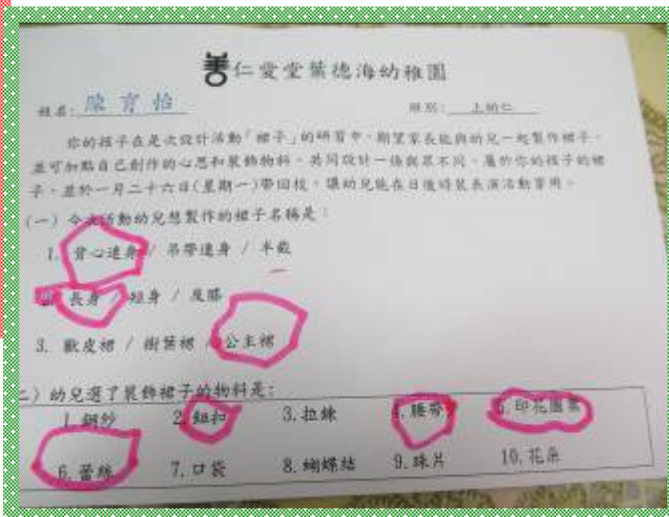 善仁愛堂葉德海幼稚園
姓名: 陳育怡 班別: 上幼仁
你的孩子在是次設計活動「裙子」的研習中,期望家長能與幼兒一起製作裙子,
並可加點自己創作的心思和裝飾物料,共同設計一條與眾不同,屬於你的孩子的裙
子,並於一月二十六日(星期一)帶回校,讓幼兒能在日後時裝表演活動享用。
(一) 今次活動幼兒想製作的裙子名稱是:
1. 背心連身 / 吊帶連身 / 半截
2. 長身 / 短身 / 及膝
3. 獸皮裙 / 樹葉裙 / 公主裙
二) 幼兒選了裝飾裙子的物料是:
1. 網紗 2. 鈕扣 3. 拉鍊 4. 腰帶 5. 印花圖案
6. 蕾絲 7. 口袋 8. 蝴蝶結 9. 珠片 10. 花朵